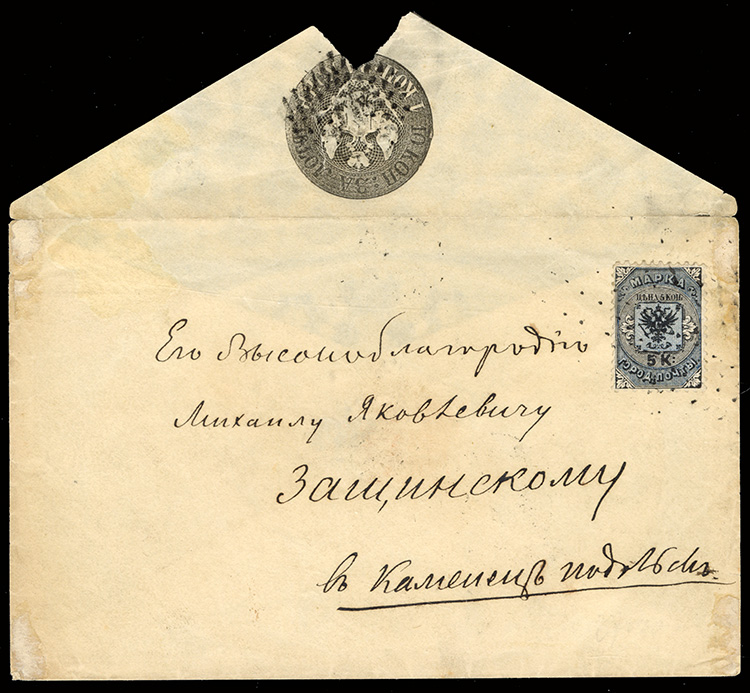 10 КОП. ЗА ЛОТЪ
1 КОП.
МАРКА
ЦѢНА 5 КОП.
5 К:
ГОРОД. ПОЧТЫ
Его Высокоблагородію
Михаилу Яковлевичу
Защинскому
въ Каменецъ подольскъ